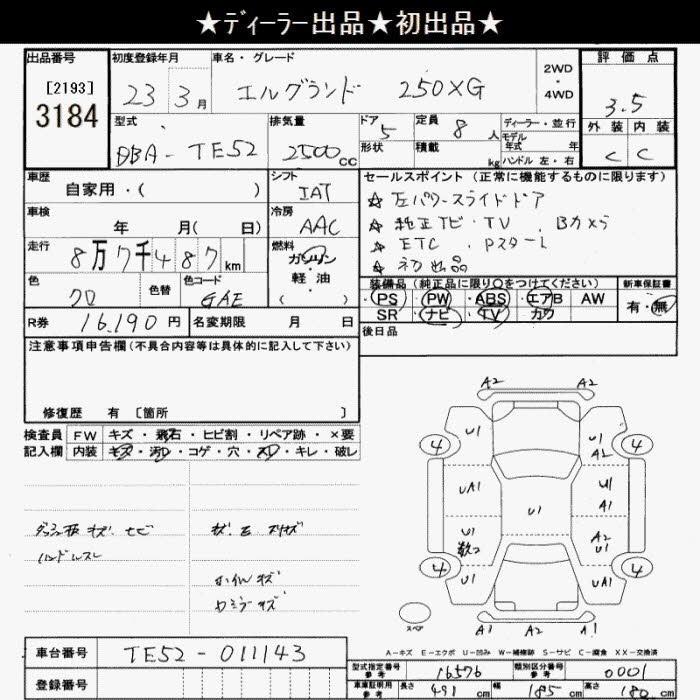 ★ディーラー出品★初出品★
出品番号
[2193]
3184
初度登録年月
23 3月
車名・グレード
エルグランド 250XG
2WD
・
4WD
評価点
3.5
外装 内装
C C
型式
DBA-TE52
排気量
2500cc
ドア
5
形状
定員
8人
積載
kg
ディーラー・並行
モデル
年式 年
ハンドル 左・右
車歴
自家用・( )
シフト
IAT
車検
年 月( 日)
冷房
AAC
走行
8万7千487km
燃料
ガソリン
軽・油
( )
色
クロ
色替
色コード
GAE
R券 16,190円
名変期限 月 日
セールスポイント(正常に機能するものに限ります)
☆左パワースライドドア
☆純正ナビ・TV・Bカメラ
☆ETC・Pスタート
☆初出品
装備品(純正品に限り○をつけてください)
PS・PW・ABS・エアB AW
SR ナビ・TV・カワ
新車保証書
有・無
後日品
注意事項申告欄(不具合内容等は具体的に記入して下さい)
修復歴 有 [箇所 ]
検査員
記入欄
FW キズ・飛石・ヒビ割・リペア跡・×要
内装 キズ・汚レ・コゲ・穴・スレ・キレ・破レ
ハンドルスレ
A2 A2
4 U1 U1 A2 4
UA1 U1 U1 A1
U1 A2 U1
4 U1 UA1 4
スペア
A1 A2 A1
A-キズ E-エクボ U-凹み W-補修跡 S-サビ C-腐食 XX-交換済
車台番号 TE52-011143
登録番号
型式指定番号
参考
16576
類別区分番号
参考
0001
車庫証明用
参考
長さ 491cm 幅 185cm 高さ 180cm